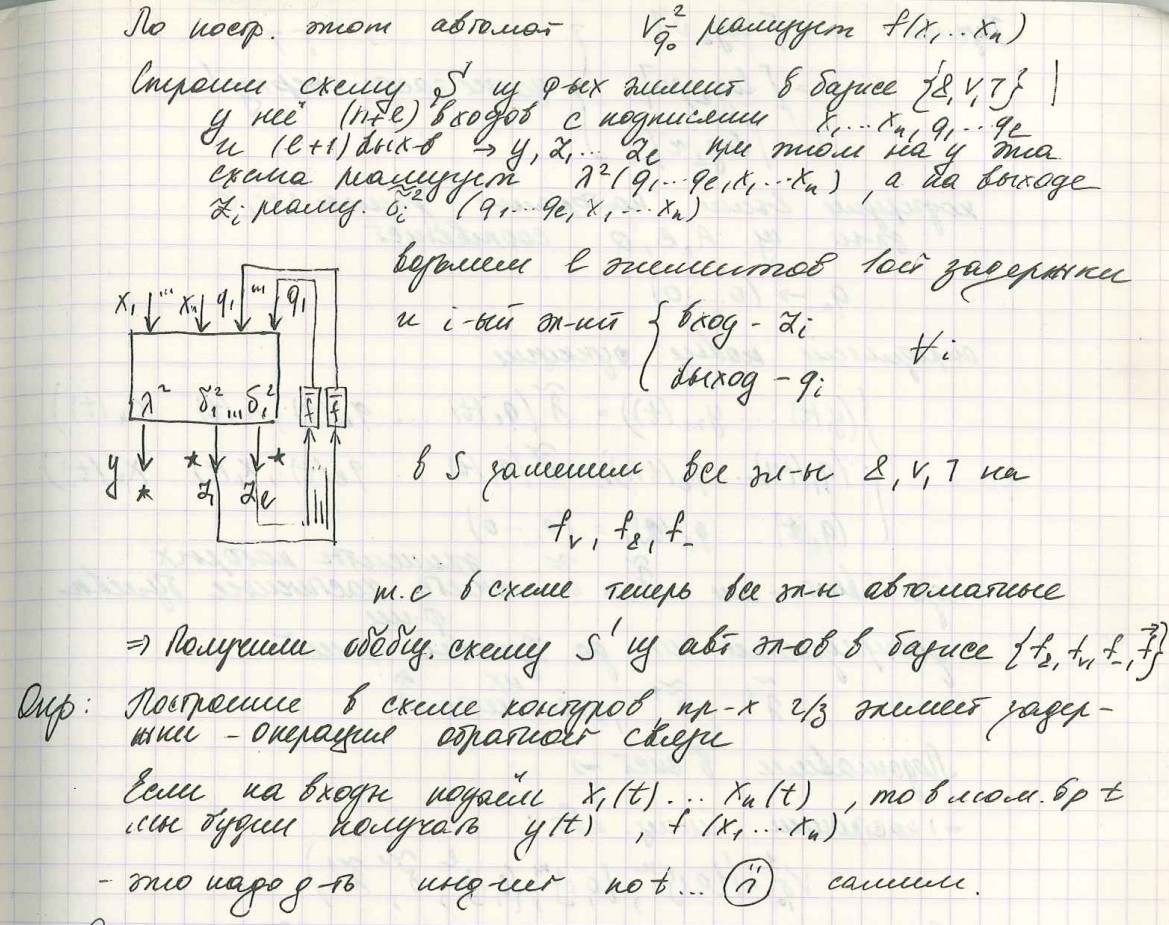 По постр. этот автомат V²_q₀ реализует f(x₁...xₙ)
Строим схему S' из ф-ых элемент в базисе {&, ∨, ¬} |
у неё (n+l) входов с подписями x₁...xₙ, q₁...qₗ
и (l+1) вых-в → y, z₁... zₗ при этом на y эта
схема реализует λ²(q₁...qₗ, x₁...xₙ), а на выходе
zᵢ реализ. δ̃ᵢ² (q₁...qₗ, x₁...xₙ)
возьмем l элементов 1ой задержки
и i-ый эл-нт { вход - zᵢ
выход - qᵢ ∀i
x₁ ... xₙ q₁ ... q₁
λ² δ̃₁² ... δ₁²
f⃗ f⃗
y * * z₁ zₗ *
в S заменим все эл-ы &, ∨, ¬ на
f_∨, f_&, f_¬
т.е в схеме теперь все эл-ы автоматные
⇒ Получили обобщ. схему S' из авт эл-ов в базисе {f_&, f_∨, f_¬, f⃗}
Опр: Построение в схеме контуров, пр-х ч/з элемент задер-
жки - операция обратной связи
Если на входы подаём x₁(t)... xₙ(t), то в мом. вр t
мы будем получать y(t), f(x₁...xₙ)
- это надо д-ть инд-ией по t... самим.